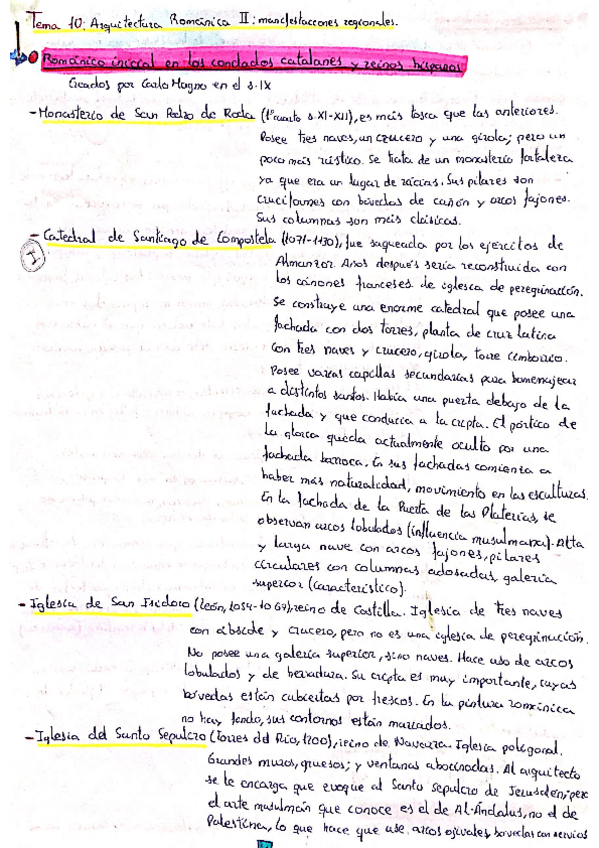 Tema 10: Arquitectura Románica II: manifestaciones regionales.
Románico inicial en los condados catalanes y reinos hispanos
Creados por Carlo Magno en el s.IX
- Monasterio de San Pedro de Roda (1º cuarto s.XI-XII), es más tosca que las anteriores.
Posee tres naves, un crucero y una girola; pero un
poco más rústico. Se trata de un monasterio fortaleza
ya que era un lugar de racias. Sus pilares son
cruciformes con bóvedas de cañón y arcos fajones.
Sus columnas son más clásicas.
- Catedral de Santiago de Compostela (1071-1130), fue saqueada por los ejércitos de
I
Almanzor. Años después sería reconstruida con
los cánones franceses de iglesia de peregrinación.
Se construye una enorme catedral que posee una
fachada con dos torres, planta de cruz latina
con tres naves y crucero, girola, torre cimborrio.
Posee varias capillas secundarias para homenajear
a distintos santos. Había una puerta debajo de la
fachada y que conducía a la cripta. El pórtico de
la gloria queda actualmente oculto por una
fachada barroca. En sus fachadas comienza a
haber más naturalidad, movimiento en las esculturas.
En la fachada de la Puerta de las Platerías, se
observan arcos lobulados (influencia musulmana). Alta
y larga nave con arcos fajones, pilares
circulares con columnas adosadas, galería
superior (característico).
- Iglesia de San Isidoro (León, 1054-1067), reino de Castilla. Iglesia de tres naves
con ábside y crucero, pero no es una iglesia de peregrinación.
No posee una galería superior, sino naves. Hace uso de arcos
lobulados y de herradura. Su cripta es muy importante, cuyas
bóvedas están cubiertas por frescos. En la pintura románica
no hay fondo, sus contornos están marcados.
- Iglesia del Santo Sepulcro (Torres del Río, 1200), reino de Navarra. Iglesia poligonal.
Grandes muros, gruesos; y ventanas abocinadas. Al arquitecto
se le encarga que evoque al Santo Sepulcro de Jerusalén; pero
el arte musulmán que conoce es el de Al-Ándalus, no el de
Palestina, lo que hace que use arcos ojivales, bóvedas con nervios